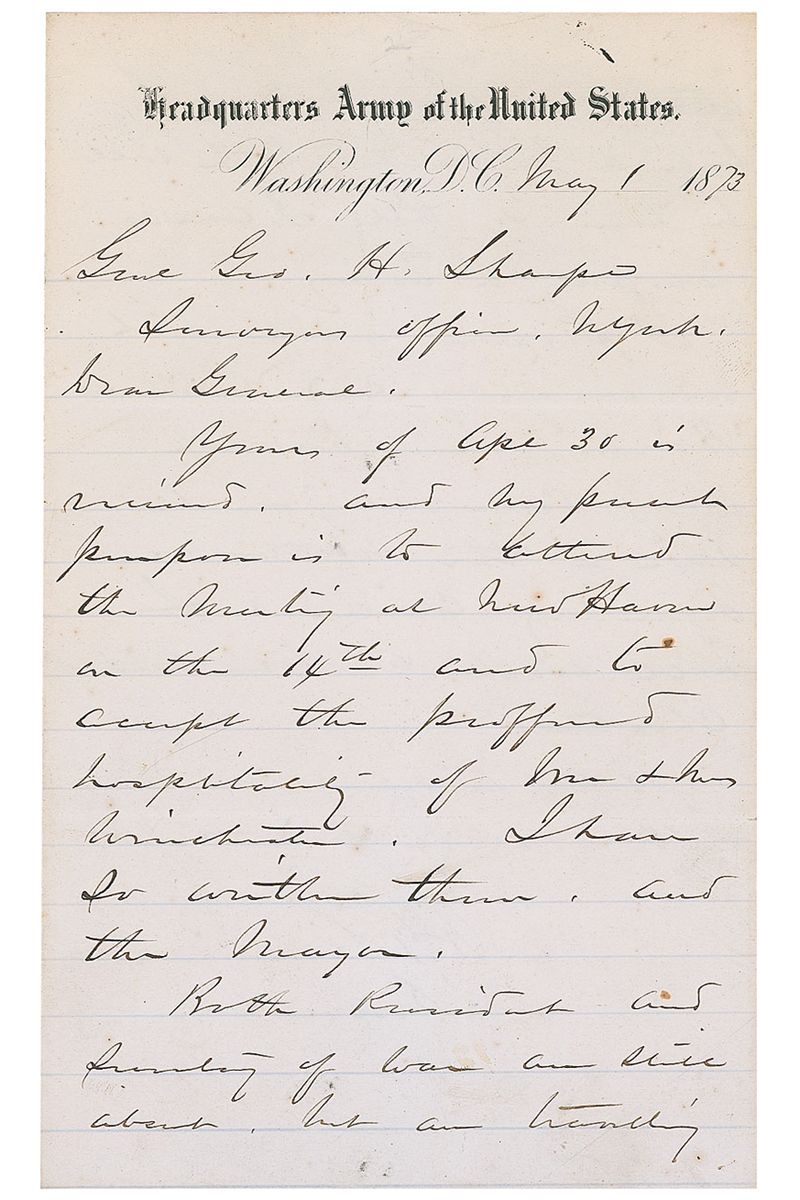 Headquarters Army of the United States.
Washington, D.C. May 1 1873
Genl Geo. H. Sharpe
Surveyors office, N York.
Dear General.
Yours of Apl 30 is
received, and my present
purpose is to attend
the Meeting at New Haven
on the 14th and to
accept the proffered
hospitality of Mr & Mrs
Winchester. I have
so written them, and
the Mayor.
Both President and
Secretary of War are still
absent, but are travelling